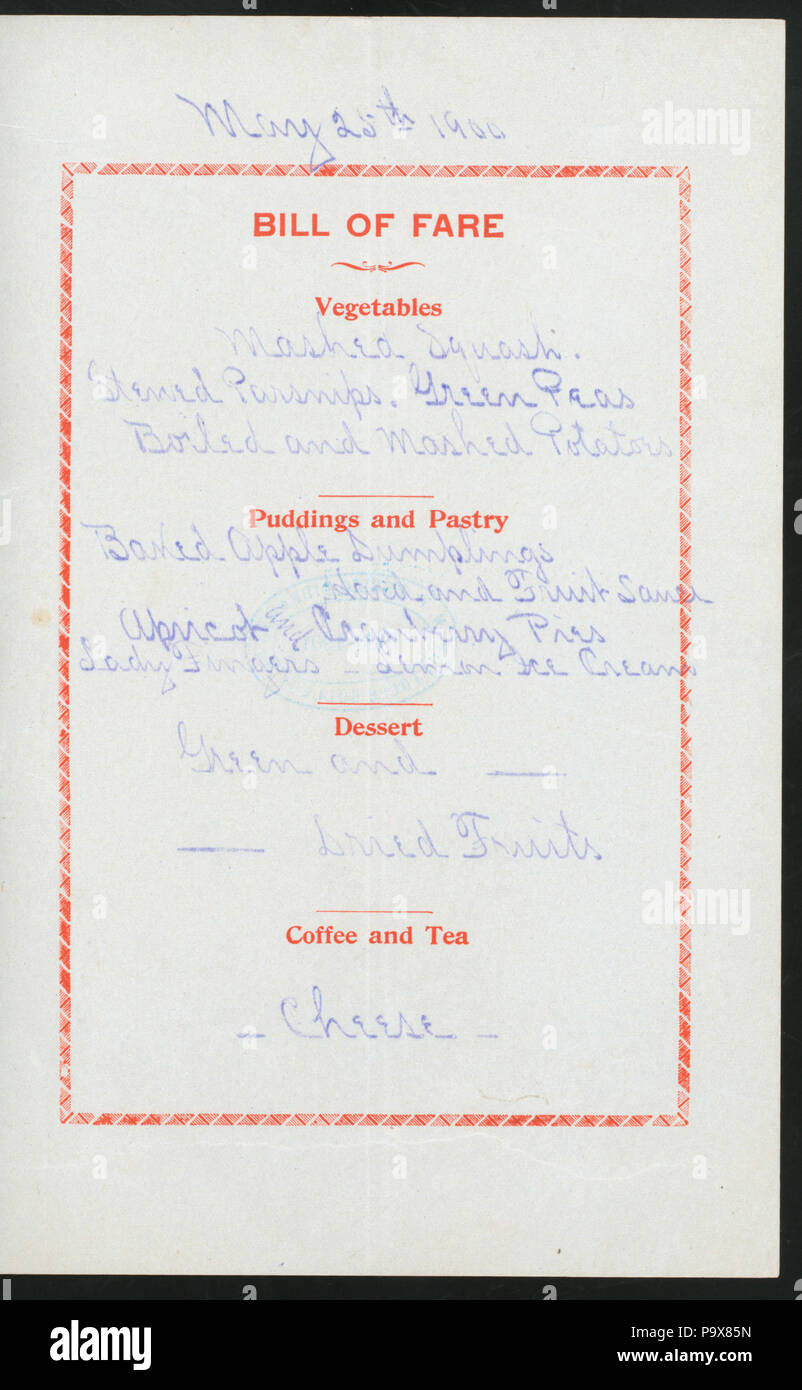 May 25th 1900
BILL OF FARE
Vegetables
Mashed Squash.
Stewed Parsnips. Green Peas
Boiled and Mashed Potatoes
Puddings and Pastry
Baked Apple Dumplings
Hard and Fruit Sauce
Apricot and Cranberry Pies
Lady Fingers - Lemon Ice Cream
Dessert
Green and —
— Dried Fruits
Coffee and Tea
- Cheese -
alamy
Image ID: P9X85N
www.alamy.com